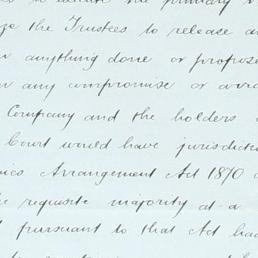 the primary
the Trustees to release a
anything done or propose
any compromise or
Company and the holders
Court would have jurisdicti
Arrangement Act 1870
he requisite majority at a
pursuant to that Act had